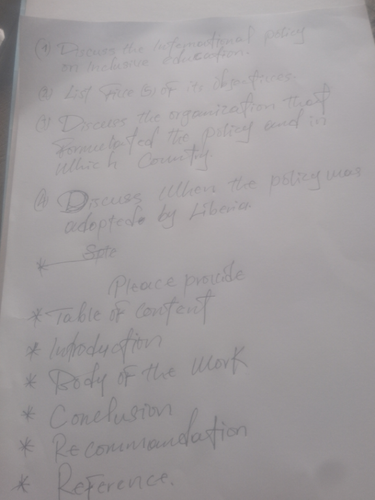 (1) Discuss the International policy
on Inclusive Education.
(2) List five (5) of its objectives.
(3) Discuss the organization that
formulated the policy and in
which Country.
(4) Discuss when the policy was
adopted by Liberia
*
Pleace provide
* Table of content
* Introduction
* Body of the work
* Conclusion
* Recommandation
* Reference.